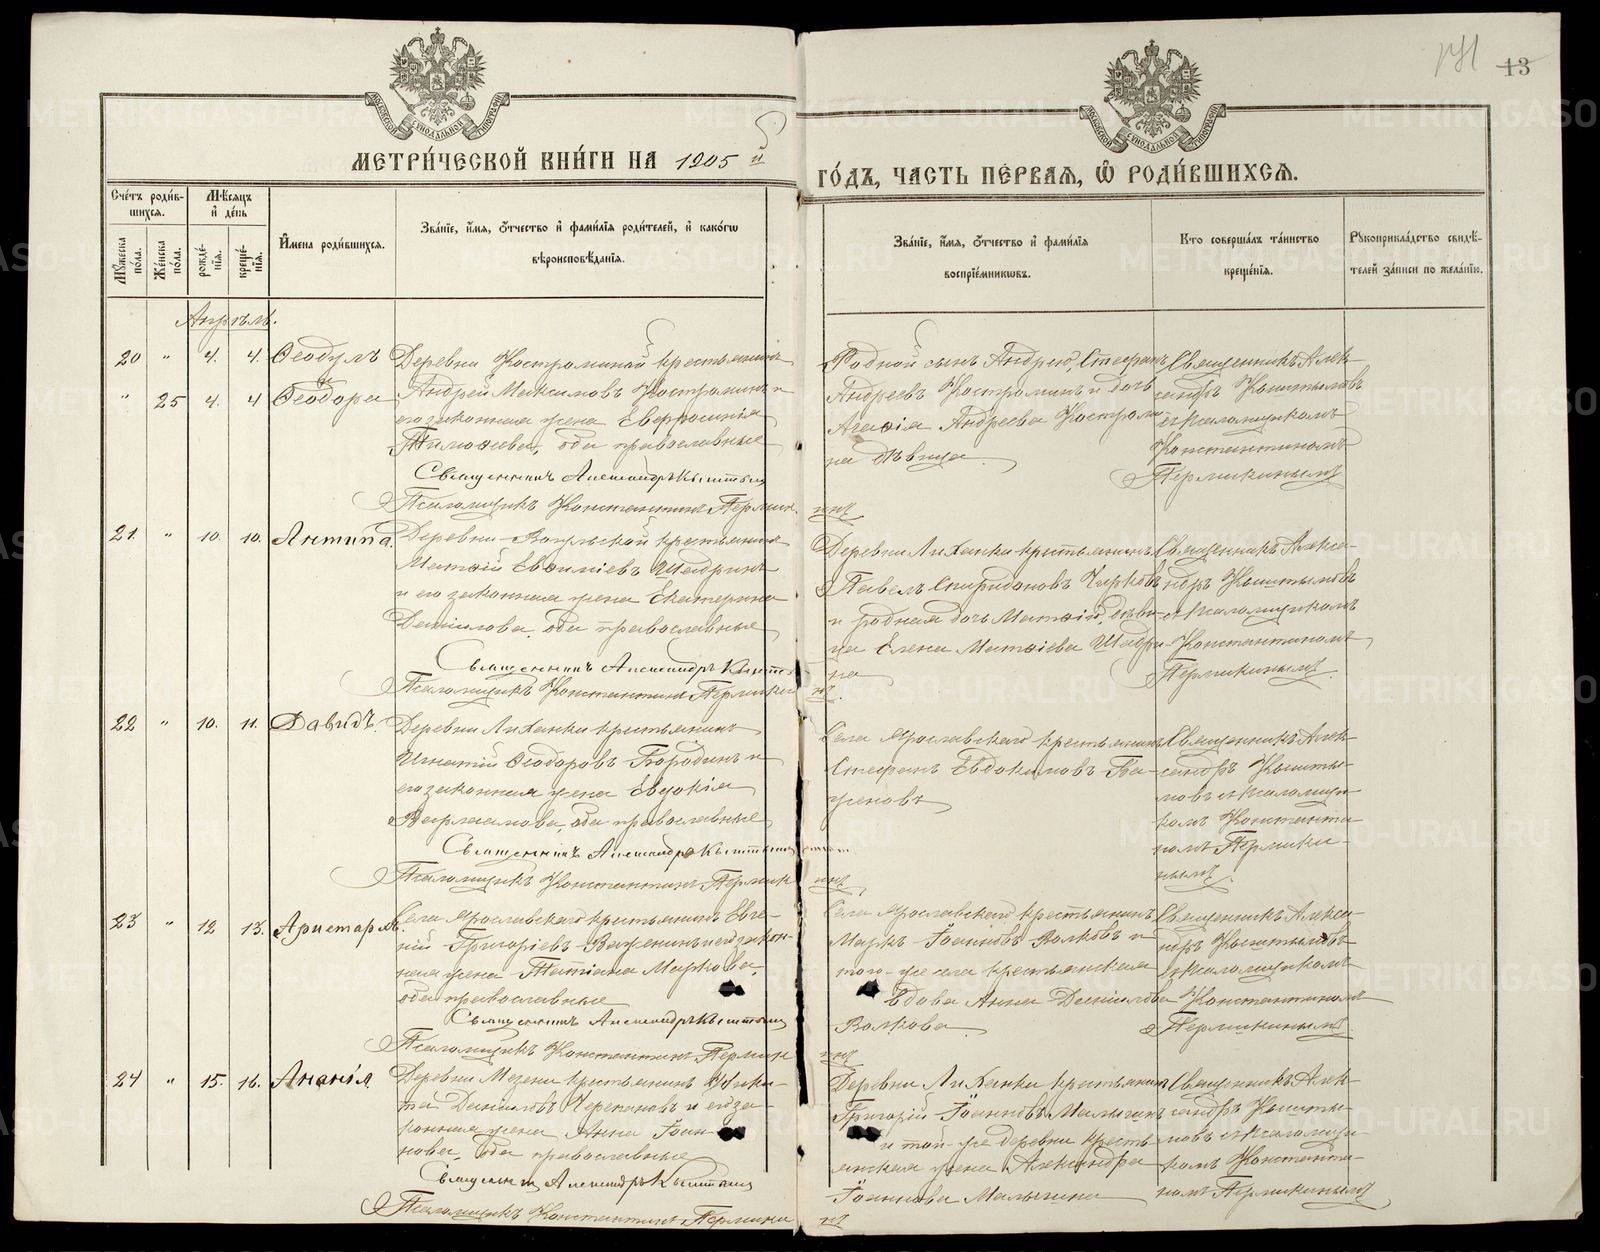 13
МЕТРИ́ЧЕСКОЙ КНИ́ГИ НА 1905 й
ГО́ДЪ, ЧАСТЬ ПЕ́РВАЯ, Ѽ РОДИ́ВШИХСЯ.
Сче́тъ роди́в-
шихся.
Му́жеска по́ла.
Же́нска по́ла.
Мѣ́сяцъ
и҆ де́нь
рожде́-
нїя.
креще́-
нїя.
И҆мена роди́вшихся.
Зва́нїе, и҆́мя, ѻ҆́тчество и҆ фами́лїя роди́телей, и҆ како́гѡ
вѣроисповѣ́данїя.
Зва́нїе, и҆́мя, ѻ҆́тчество и҆ фами́лїя
воспрїе́мникѡвъ.
Кто̀ соверша́лъ та́инство
креще́нїя.
Рукоприкла́дство свидѣ́-
телей за́писи по жела́нїю.
Апрѣль.
20 " 4. 4. Ѳеодулъ
" 25 4. 4 Ѳеодора
Деревни Костроминой крестьянинъ
Андрей Максимовъ Костроминъ и
его законная жена Евфросинія
Тимоѳеева, оба православные
Священникъ Александръ Кыштымовъ
Псаломщикъ Константинъ Пермикинъ
Родной сынъ Андрею, Стефанъ
Андреевъ Костроминъ и дочь
Агаѳія Андреева Костроми-
на дѣвица.
Священникъ Алек-
сандръ Кыштымовъ
съ псаломщикомъ
Константиномъ
Пермикинымъ
21. " 10. 10. Антипа.
Деревни Вогульской крестьянинъ
Матѳій Евѳиміевъ Шадринъ
и его законная жена Екатерина
Даніилова, оба православные
Священникъ Александръ Кыштымовъ
Псаломщикъ Константинъ Пермикинъ
Деревни Лиханки крестьянинъ
Павелъ Спиридоновъ Чирковъ
и родная дочь Матѳія, дѣви-
ца Елена Матѳіева Шадри-
на
Священникъ Алекса-
ндръ Кыштымовъ
съ псаломщикомъ
Константиномъ
Пермикинымъ.
22 " 10. 11. Давидъ.
Деревни Лиханки крестьянинъ
Игнатій Ѳеодоровъ Бородинъ и
его законная жена Евдокія
Варлаамова, оба православные
Священникъ Александръ Кыштымовъ
Псаломщикъ Константинъ Пермикинъ
Села Ярославскаго крестьянинъ
Стефанъ Евдокимовъ Ба-
женовъ
Священникъ Алек-
сандръ Кышты-
мовъ съ псаломщи-
комъ Константи-
номъ Пермики-
нымъ.
23 " 12 13. Аристархъ.
Села Ярославскаго крестьянинъ Евге-
ній Григоріевъ Важенинъ и его закон-
ная жена Татіана Маркова,
оба православные
Священникъ Александръ Кыштымовъ
Псаломщикъ Константинъ Пермикинъ
Села Ярославскаго крестьянинъ
Маркъ Іоанновъ Волковъ и
того-же села крестьянская
вдова Анна Даніилова
Волкова
Священникъ Алекса-
ндръ Кыштымовъ
съ псаломщикомъ
Константиномъ
Пермикинымъ.
24 " 15. 16. Ананія
Деревни Мезени крестьянинъ Ники-
та Даніиловъ Черепановъ и его за-
конная жена Анна Іоан-
нова, оба православные
Священникъ Александръ Кыштымовъ
Псаломщикъ Константинъ Пермикинъ
Деревни Лиханки крестьянинъ
Григорій Іоанновъ Малыгинъ
и той-же деревни кресть-
янская жена Александра
Іоаннова Малыгина
Священникъ Алек-
сандръ Кышты-
мовъ съ псаломщи-
комъ Константи-
номъ Пермикинымъ
METRIKI.GASO-URAL.RU